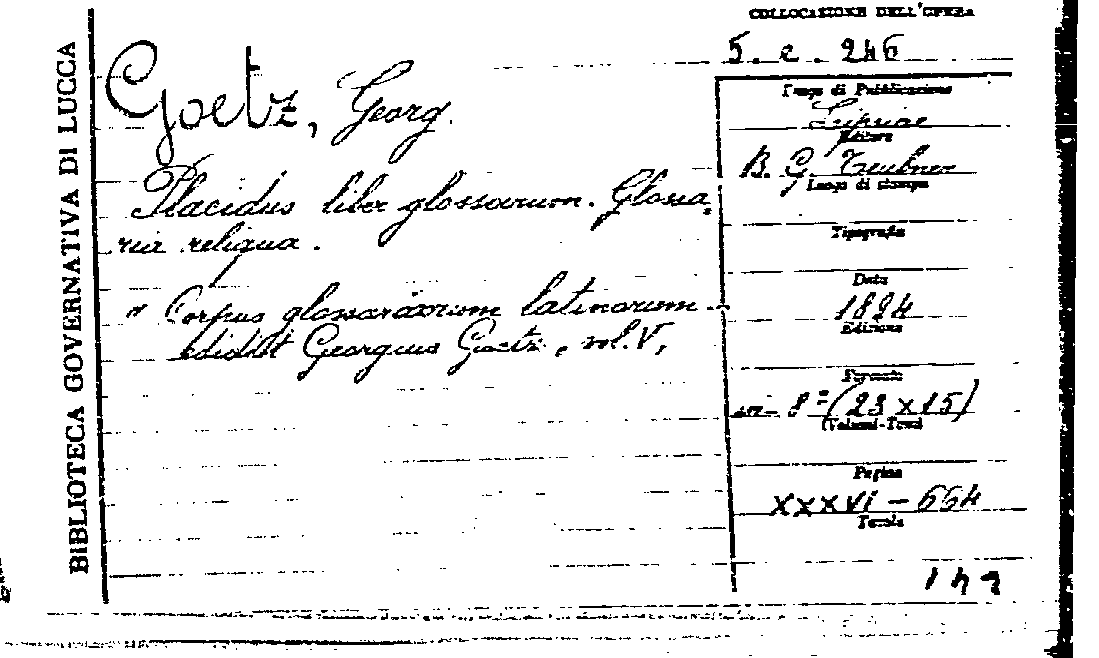 BIBLIOTECA GOVERNATIVA DI LUCCA
COLLOCAZIONE DELL'OPERA
5. c. 246
Goetz, Georg.
Placidus liber glossarum. Glossa,
ria reliqua.
" Corpus glossariorum latinorum
edidit Georgius Goetz, vol. V,
Luogo di Pubblicazione
Lipsiae
Editore
B. G. Teubner
Luogo di stampa
Tipografia
Data
1894
Edizione
Formato
in- 8° (23 x 15)
(Volumi-Tomi
Pagine
XXXVI - 664
Tavole